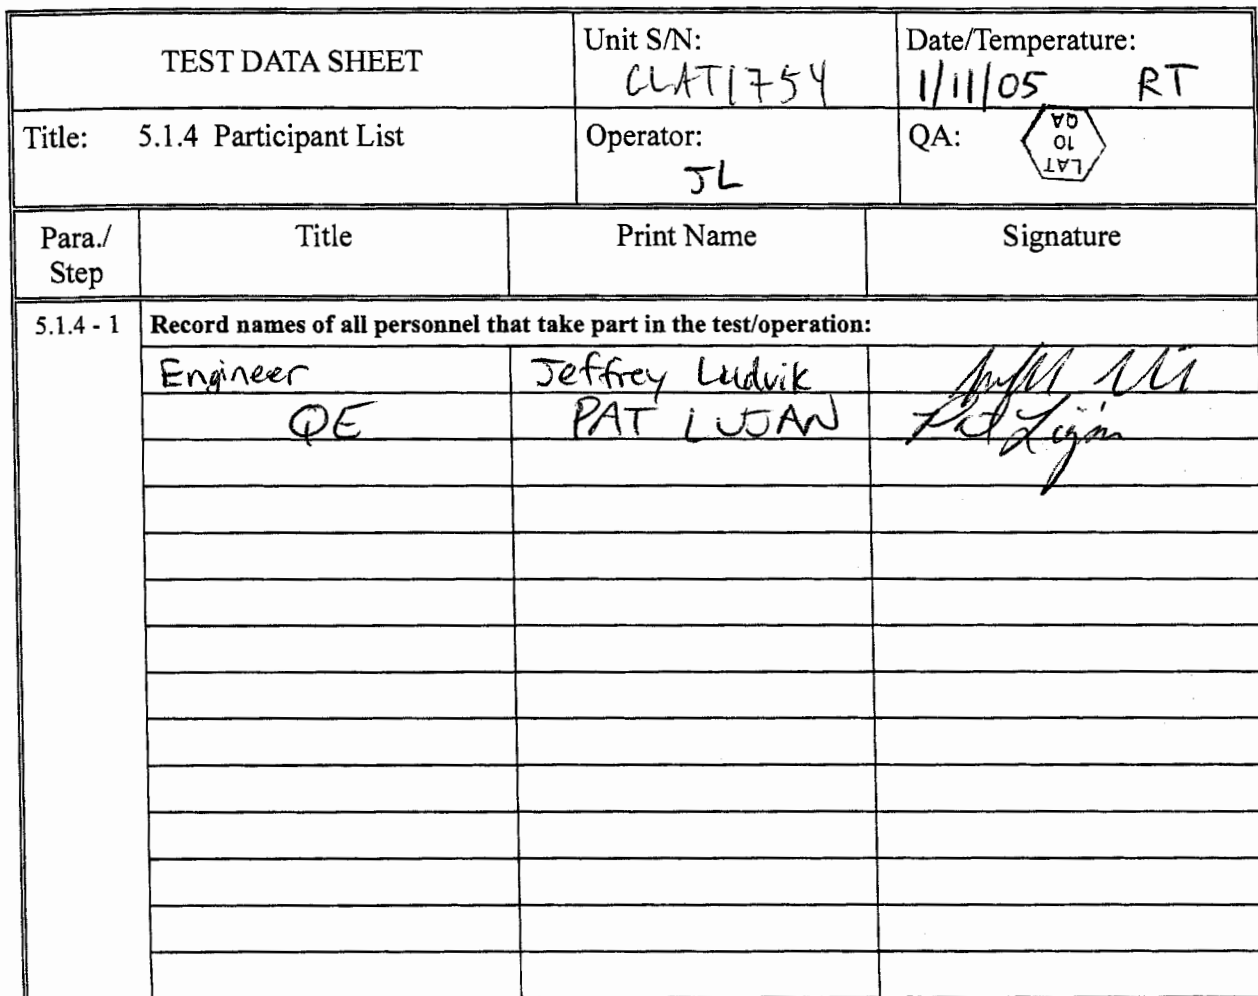 TEST DATA SHEET
Unit S/N:
CLAT1754
Date/Temperature:
1/11/05 RT
Title: 5.1.4 Participant List
Operator:
JL
QA:
LAT
10
QA
Para./
Step
Title
Print Name
Signature
5.1.4 - 1
Record names of all personnel that take part in the test/operation:
Engineer Jeffrey Ludvik
QE PAT LUJAN Pat Lujan